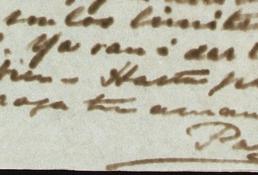 son los limite
Ya van á dar l
tien - Hasta p
raga tu aman
Pa